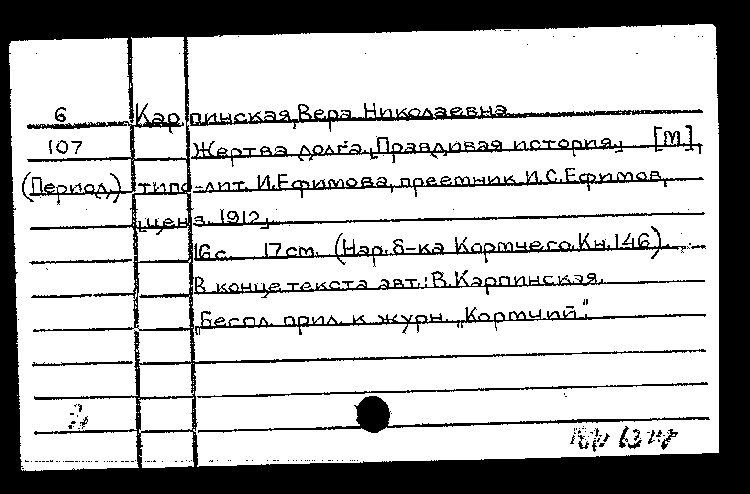 6 Карпинская, Вера Николаевна
107 Жертва долга. „Правдивая история.„ [М],
(Период.) типо-лит. И.Ефимова, преемник И.С.Ефимов,
„ценз. 1912„.
16с. 17см. (Нар. б-ка Кормчего. Кн. 146).
В конце текста авт.: В. Карпинская.
„Беспл. прил. к журн. „Кормчий."